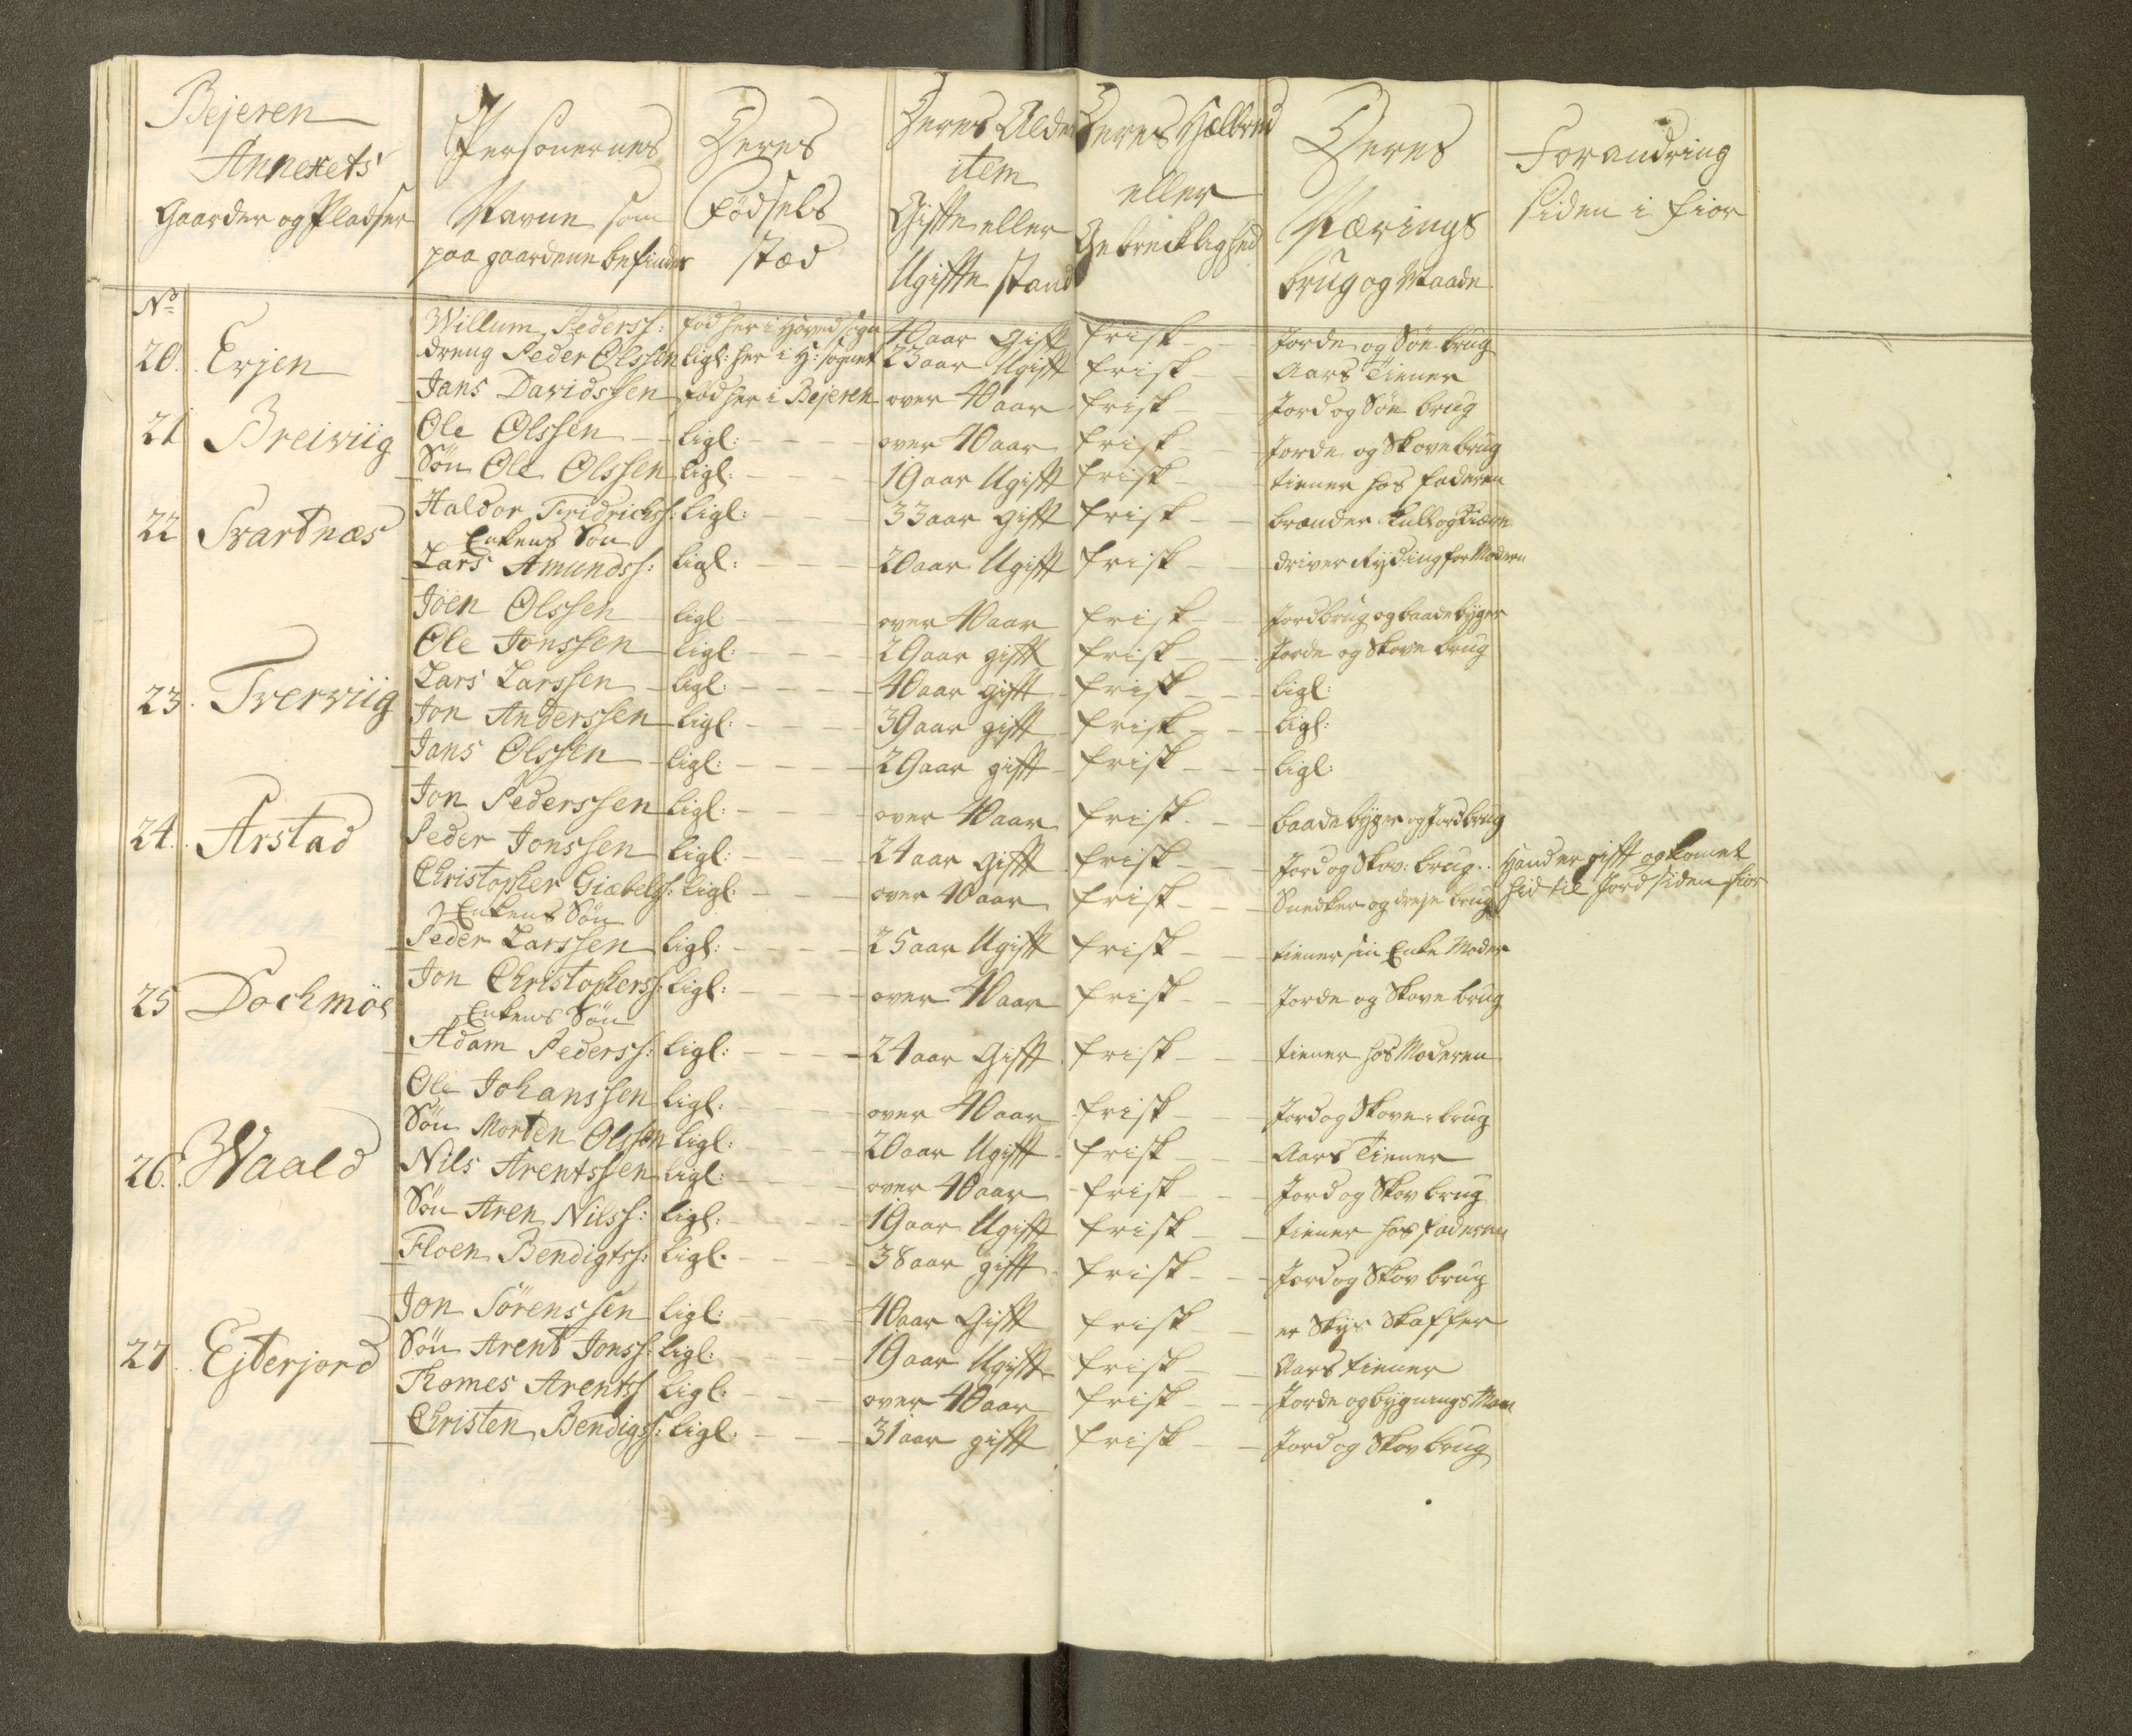 Bejeren
Annexets
Gaarder og Pladser
Personernes
Navne som
paa gaardene befindes
Deres
Födsels
stæd
Deres Alder
item
Giffte eller
Ugiffte stand
Deres Helbred
eller
Gebrecklighed
Deres
Nærings
brug og Maade
Forandring
siden i fior
No
20. Erjen
Willum Pederss: fød her i Hoved sogn 40 aar Gift frisk Jorde og Söe brug
dreng Peder Olssen ligl: her i H: sognet 23 aar Ugift frisk Aars Tiener
Jans Davidssen fød her i Bejeren over 40 aar frisk Jord og Söe brug
21 Breiviig
Ole Olssen ligl: over 40 aar frisk Jorde og Skove brug
Sön Ole Olssen ligl: 19 aar Ugifft frisk tiener hos faderen
22 Svartnæs
Haldor Fridrichss: ligl: 33 aar gifft frisk brænder Kull og Tiære
Enkens Sön
Lars Amundss: ligl: 20 aar Ugifft frisk driver Rydning for Modern
Joen Olssen ligl over 40 aar frisk Jordbrug og baadebyger
Ole Jonssen ligl: 29 aar gifft frisk Jorde og Skove brug
23. Tverviig
Lars Larssen ligl: 40 aar gifft frisk ligl:
Jon Anderssen ligl: 30 aar gifft frisk ligl:
Jans Olssen ligl: 29 aar gifft frisk ligl:
24. Arstad
Jon Pederssen ligl: over 40 aar frisk baadebyger og Jordbrug
Peder Jonssen ligl: 24 aar Gifft frisk Jord og Skov: brug. Hand er gifft og komet
Christopher Giæbels: ligl: over 40 aar frisk Snedker og dreje brug hid til Jord siden fior
Enkens Sön
Peder Larssen ligl: 25 aar Ugifft frisk tiener sin Enke Moder
25 Dochmöe
Jon Christophers: ligl: over 40 aar frisk Jorde og Skove brug
Enkens Sön
Adam Pederss: ligl: 24 aar Gifft frisk tiener hos Moderen
Ole Johanssen ligl: over 40 aar frisk Jord og Skove brug
26. Waald
Sön Morten Olssen ligl: 20 aar Ugifft frisk Aars Tiener
Nils Arentssen ligl: over 40 aar frisk Jord og Skov brug
Sön Aren Nilss: ligl: 19 aar Ugifft frisk tiener hos faderen
Floen Bendigtss: ligl. 38 aar gifft frisk Jord og Skov brug
Jon Sörenssen ligl: 40 aar Gifft frisk er Skys Skaffer
27. Ejterjord
Sön Arent Jonss: ligl: 19 aar Ugifft frisk Aars tiener
Thomes Arentss ligl. over 40 aar frisk Jorde og bygnings Man
Christen Bendigss: ligl. 31 aar gifft frisk Jord og Skov brug